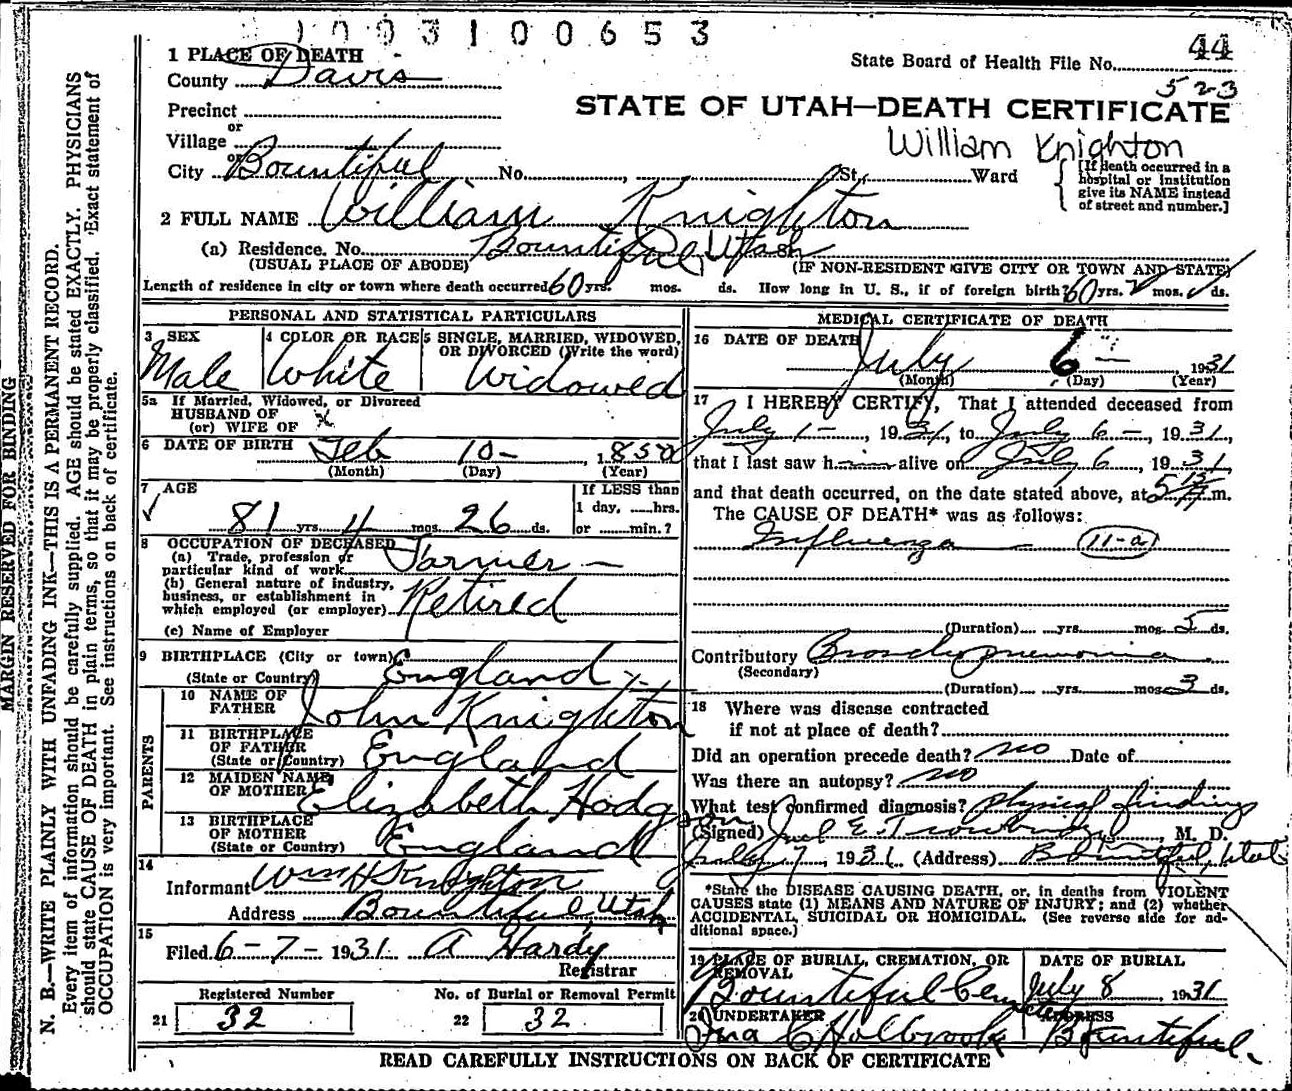 1003100653
44
1 PLACE OF DEATH
State Board of Health File No.
County Davis
523
STATE OF UTAH—DEATH CERTIFICATE
Precinct
or
William Knighton
Village
or
City Bountiful No. , St., Ward
[If death occurred in a
hospital or institution
give its NAME instead
of street and number.]
2 FULL NAME William Knighton
(a) Residence. No. Bountiful, Utah
(USUAL PLACE OF ABODE) (IF NON-RESIDENT GIVE CITY OR TOWN AND STATE)
Length of residence in city or town where death occurred 60 yrs. mos. ds. How long in U. S., if of foreign birth? 60 yrs. mos. ds.
PERSONAL AND STATISTICAL PARTICULARS
3 SEX
Male
4 COLOR OR RACE
White
5 SINGLE, MARRIED, WIDOWED,
OR DIVORCED (Write the word)
Widowed
5a If Married, Widowed, or Divorced
HUSBAND OF
(or) WIFE OF x
6 DATE OF BIRTH Feb 10- , 1850
(Month) (Day) (Year)
7 AGE
81 yrs 4 mos 26 ds.
If LESS than
1 day, hrs.
or min.?
8 OCCUPATION OF DECEASED
(a) Trade, profession or
particular kind of work Farmer -
(b) General nature of industry,
business, or establishment in
which employed (or employer) Retired
(c) Name of Employer
9 BIRTHPLACE (City or town)
(State or Country) England
PARENTS
10 NAME OF
FATHER John Knighton
11 BIRTHPLACE
OF FATHER
(State or Country) England
12 MAIDEN NAME
OF MOTHER Elizabeth Hodgson
13 BIRTHPLACE
OF MOTHER
(State or Country) England
14
Informant Wm H Knighton
Address Bountiful, Utah
15
Filed 6-7- 1931 A Hardy
Registrar
Registered Number
21 32
No. of Burial or Removal Permit
22 32
MEDICAL CERTIFICATE OF DEATH
16 DATE OF DEATH
July 6- , 1931
(Month) (Day) (Year)
17 I HEREBY CERTIFY, That I attended deceased from
July 1- , 1931, to July 6- , 1931,
that I last saw h alive on July 6 , 1931
and that death occurred, on the date stated above, at m.
The CAUSE OF DEATH* was as follows:
Influenza 11-a
(Duration) yrs. mos. 5 ds.
Contributory Bronchopneumonia
(Secondary)
(Duration) yrs. mos. 3 ds.
18 Where was disease contracted
if not at place of death?
Did an operation precede death? no Date of
Was there an autopsy? no
What test confirmed diagnosis? physical findings
(Signed) E. Trowbridge, M. D.
July 7, 1931 (Address) Bountiful, Utah
*State the DISEASE CAUSING DEATH, or, in deaths from VIOLENT
CAUSES state (1) MEANS AND NATURE OF INJURY; and (2) whether
ACCIDENTAL, SUICIDAL OR HOMICIDAL. (See reverse side for ad-
ditional space.)
19 PLACE OF BURIAL, CREMATION, OR
REMOVAL
Bountiful Cemetery
DATE OF BURIAL
July 8 , 1931
20 UNDERTAKER
C Holbrook
ADDRESS
Bountiful.
READ CAREFULLY INSTRUCTIONS ON BACK OF CERTIFICATE
MARGIN RESERVED FOR BINDING
N. B.—WRITE PLAINLY WITH UNFADING INK—THIS IS A PERMANENT RECORD.
Every item of information should be carefully supplied. AGE should be stated EXACTLY. PHYSICIANS
should state CAUSE OF DEATH in plain terms, so that it may be properly classified. Exact statement of
OCCUPATION is very important. See instructions on back of certificate.